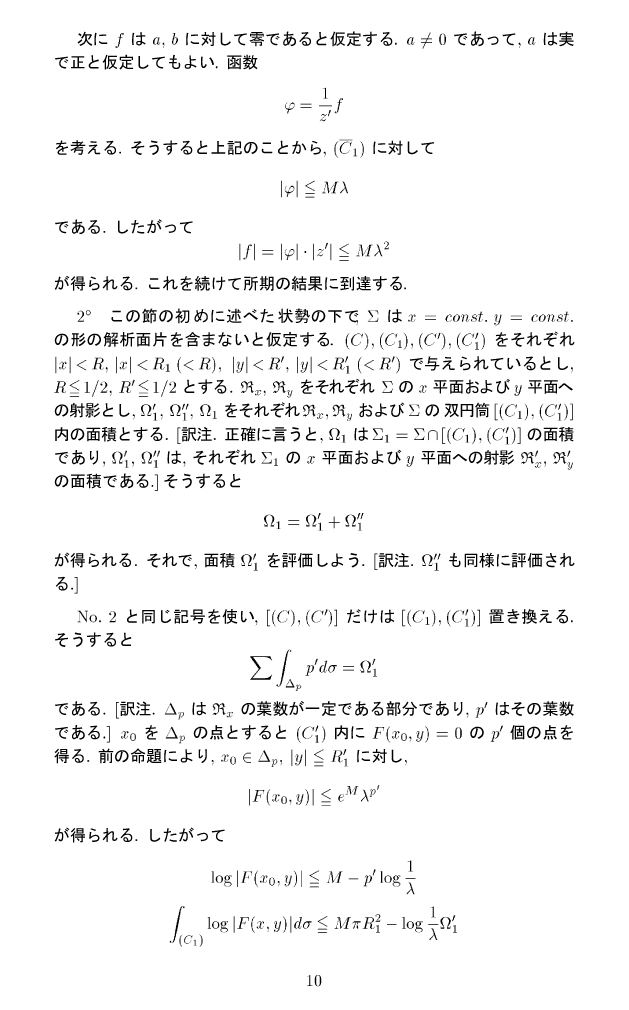 次に f は a, b に対して零であると仮定する. a ≠ 0 であって, a は実
で正と仮定してもよい. 函数
φ = \frac{1}{z′} f
を考える. そうすると上記のことから, (\overline{C}₁) に対して
|φ| ≦ Mλ
である. したがって
|f| = |φ| · |z′| ≦ Mλ²
が得られる. これを続けて所期の結果に到達する.
2° この節の初めに述べた状勢の下で Σ は x = const. y = const.
の形の解析面片を含まないと仮定する. (C), (C₁), (C′), (C′₁) をそれぞれ
|x| < R, |x| < R₁ (< R), |y| < R′, |y| < R′₁ (< R′) で与えられているとし,
R ≦ 1/2, R′ ≦ 1/2 とする. ℜₓ, ℜ_y をそれぞれ Σ の x 平面および y 平面へ
の射影とし, Ω′₁, Ω″₁, Ω₁ をそれぞれ ℜₓ, ℜ_y および Σ の 双円筒 [(C₁), (C′₁)]
内の面積とする. [訳注. 正確に言うと, Ω₁ は Σ₁ = Σ∩[(C₁), (C′₁)] の面積
であり, Ω′₁, Ω″₁ は, それぞれ Σ₁ の x 平面および y 平面への射影 ℜ′ₓ, ℜ′_y
の面積である.] そうすると
Ω₁ = Ω′₁ + Ω″₁
が得られる. それで, 面積 Ω′₁ を評価しよう. [訳注. Ω″₁ も同様に評価され
る.]
No. 2 と同じ記号を使い, [(C), (C′)] だけは [(C₁), (C′₁)] 置き換える.
そうすると
∑ ∫_{Δ_p} p′dσ = Ω′₁
である. [訳注. Δ_p は ℜₓ の葉数が一定である部分であり, p′ はその葉数
である.] x₀ を Δ_p の点とすると (C′₁) 内に F(x₀, y) = 0 の p′ 個の点を
得る. 前の命題により, x₀ ∈ Δ_p, |y| ≦ R′₁ に対し,
|F(x₀, y)| ≦ e^M λ^{p′}
が得られる. したがって
log |F(x₀, y)| ≦ M − p′ log \frac{1}{λ}
∫_{(C₁)} log |F(x, y)|dσ ≦ MπR₁² − log \frac{1}{λ} Ω′₁
10